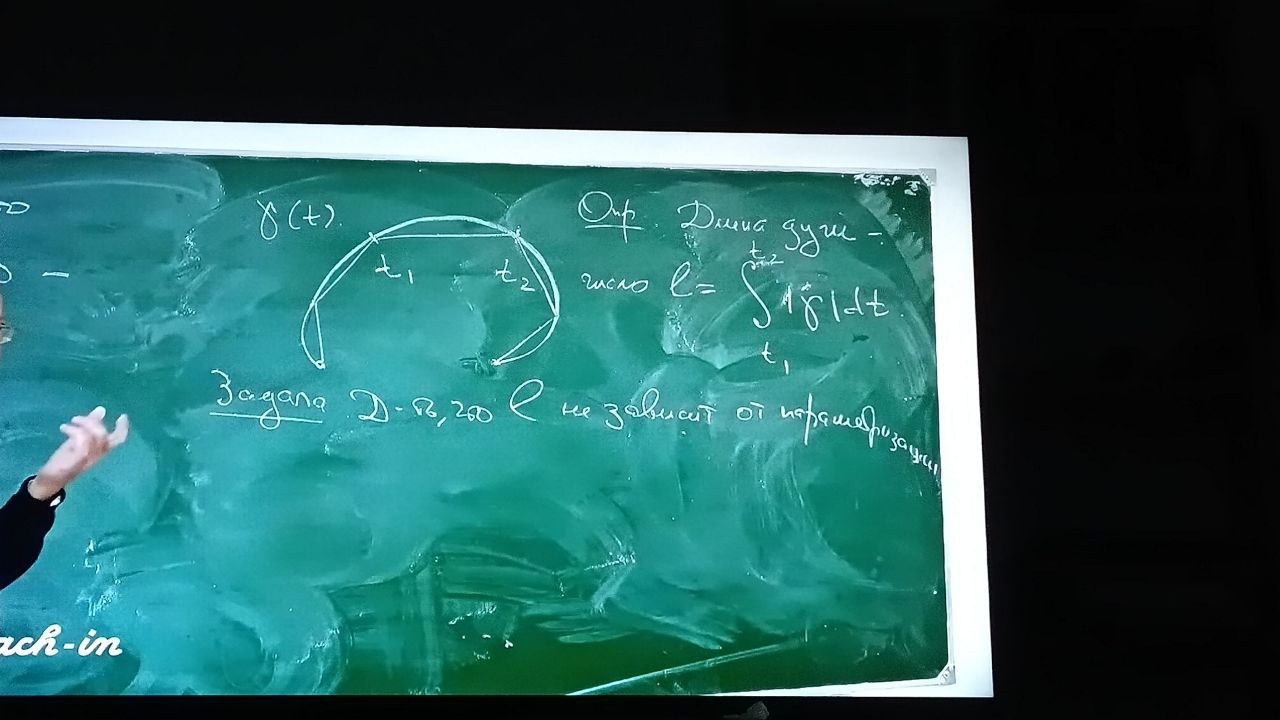 γ(t).
t₁
t₂
Опр. Длина дуги -
число l = ∫ |γ̇| dt.
t₂
t₁
Задача Д-ть, что l не зависит от параметризации
ach-in